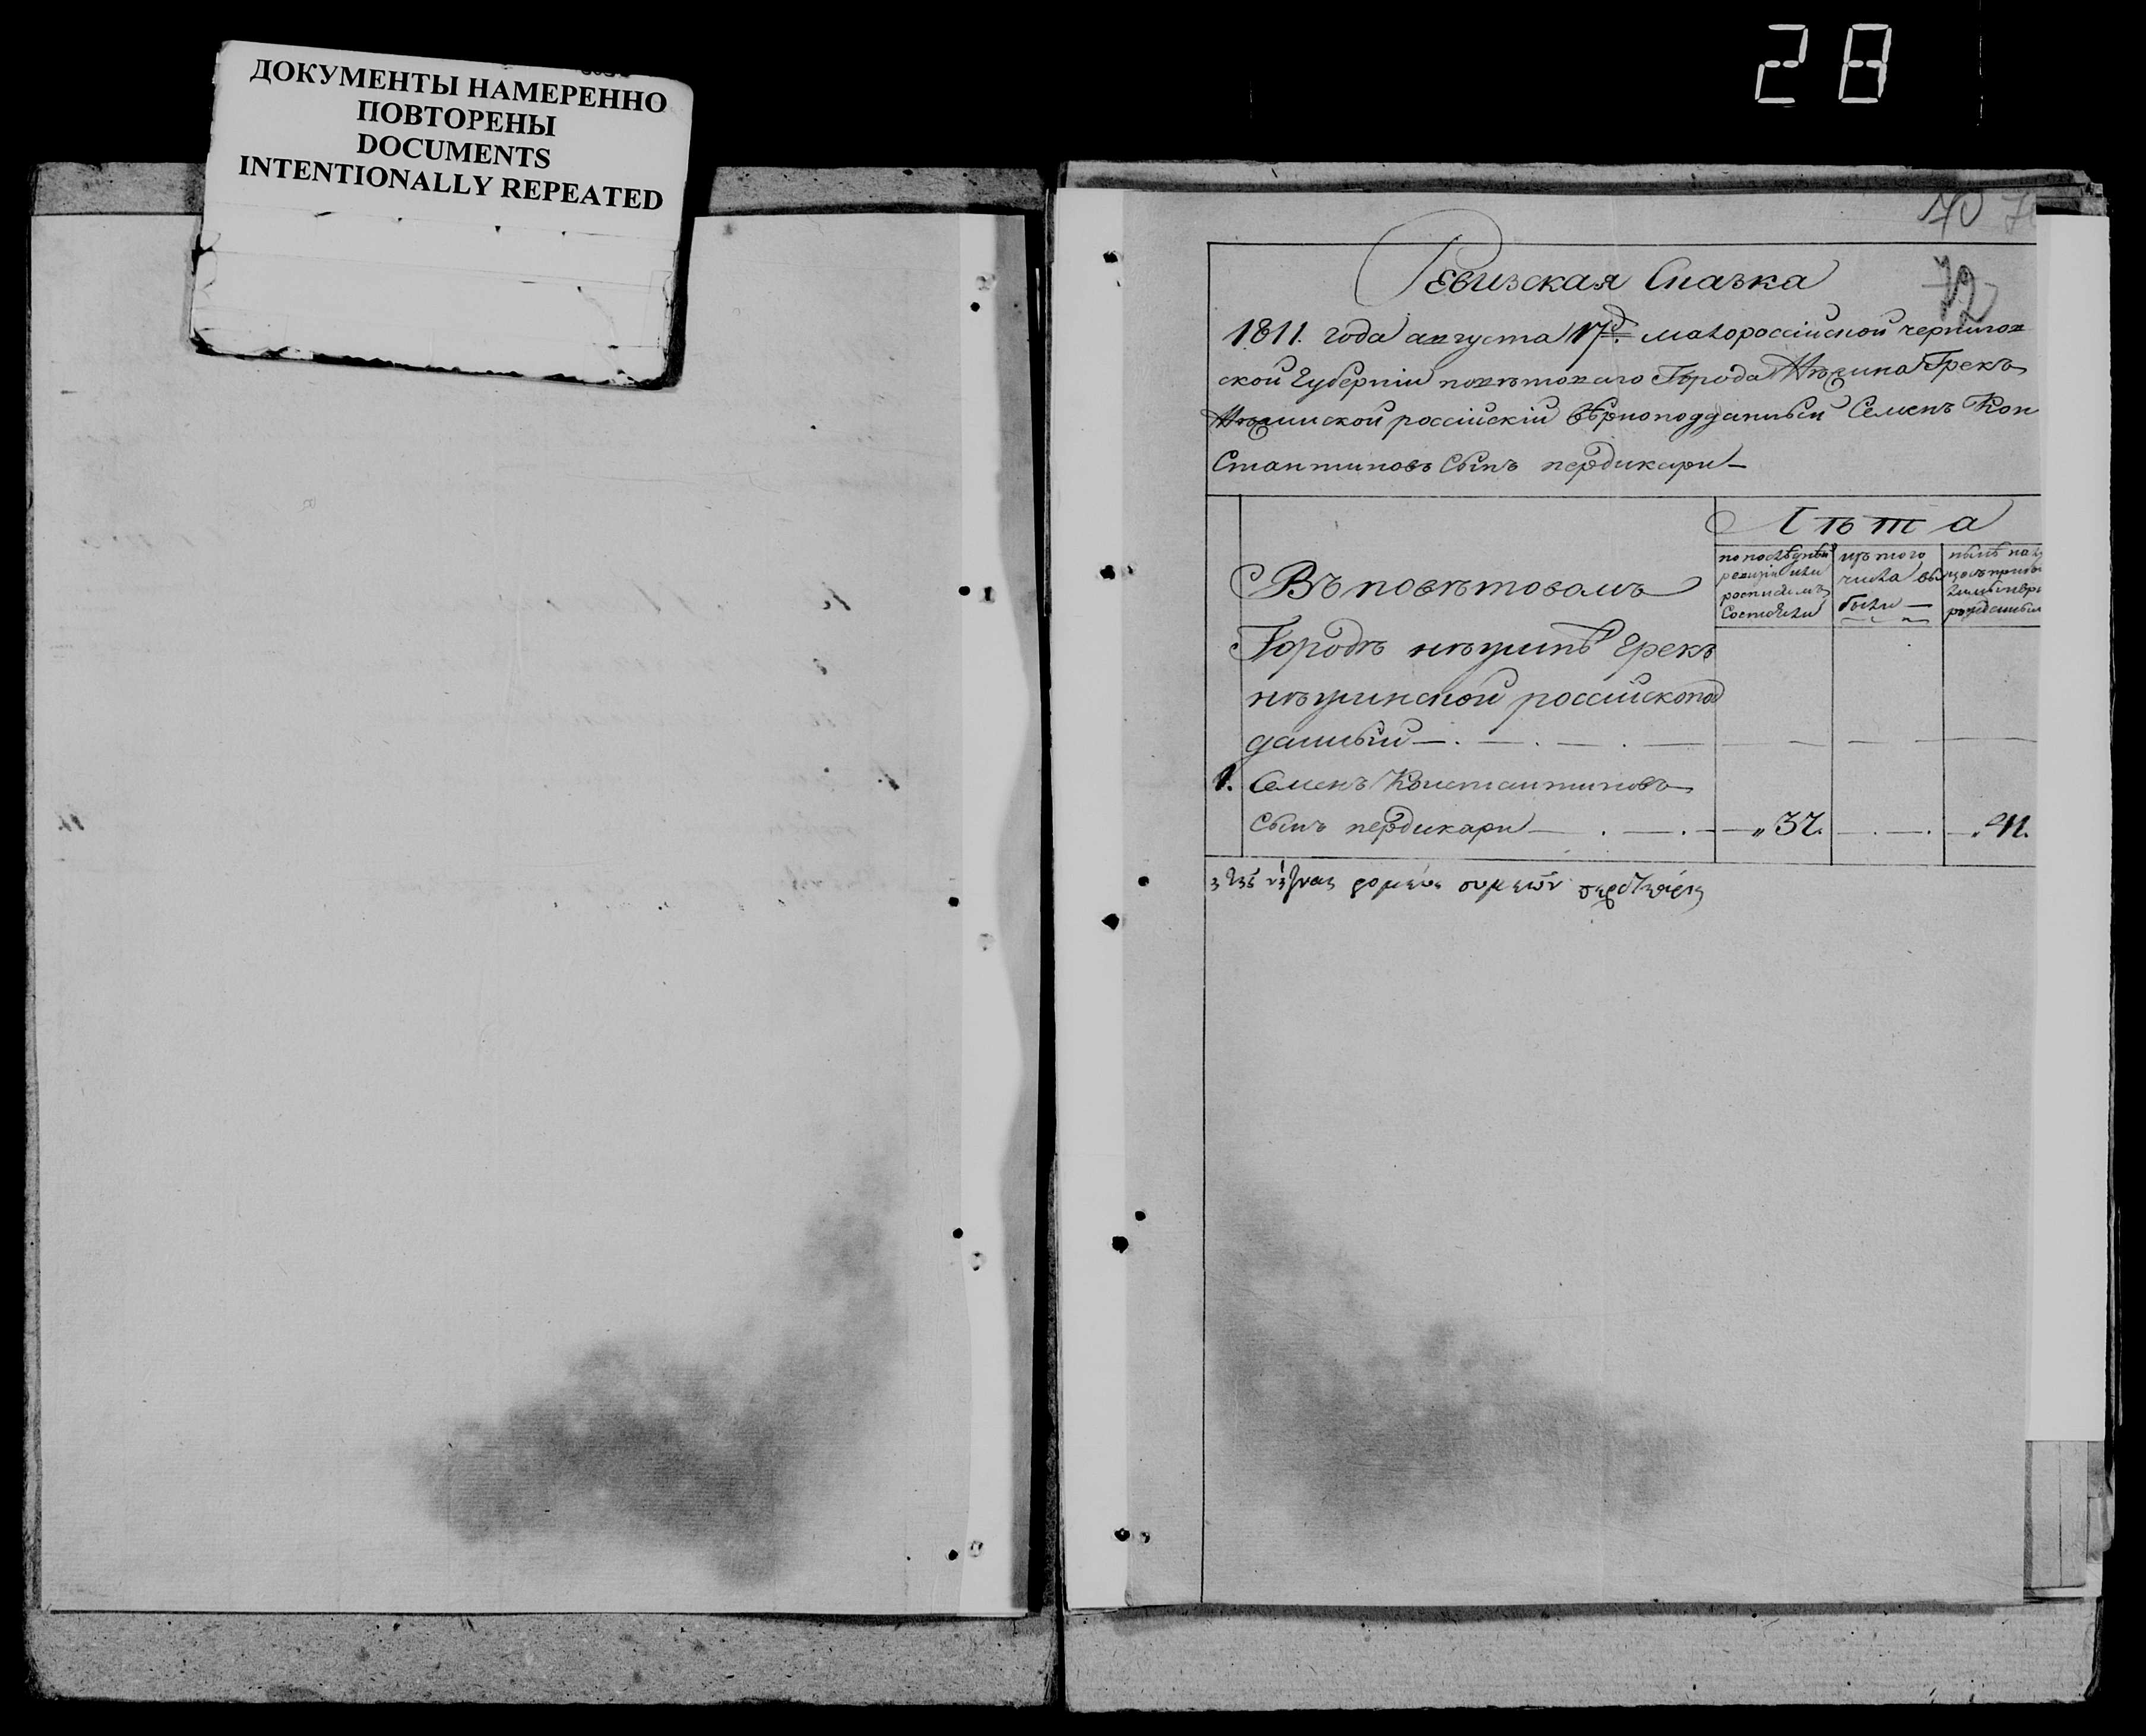 28
ДОКУМЕНТЫ НАМЕРЕННО
ПОВТОРЕНЫ
DOCUMENTS
INTENTIONALLY REPEATED
70
72
Ревизская Сказка
1811. года августа 17д. малороссійской чернигов
ской Губерніи повѣтоваго Города Нѣжина Грекъ
Нѣжинской россійскій вѣрноподданный Семенъ Кон
стантиновъ сынъ пердикари
Лѣта
по послѣдней
ревизіи или
росписямъ
Состояли
изъ того
числа вы
были
нынѣ на
Въ повѣтовомъ
Городѣ нѣжинѣ Грекъ
нѣжинской россійскопод
данный
1. Семенъ Константиновъ
сынъ пердикари 37. 41.